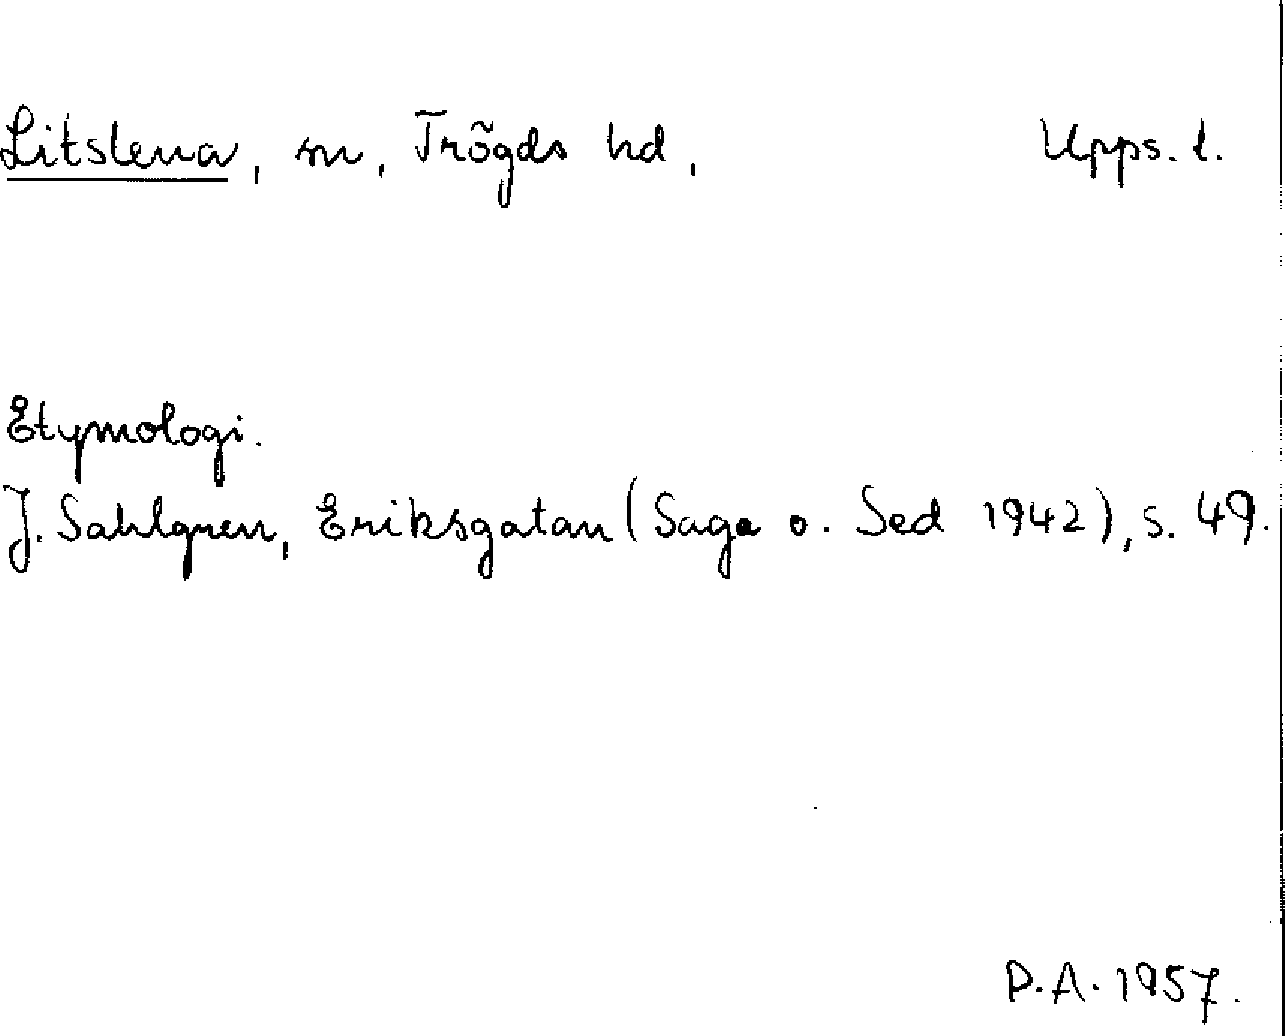 Litslena, sn, Trögds hd, Upps. l.
Etymologi.
J. Sahlgren, Eriksgatan (Saga o. Sed 1942), s. 49.
P.A. 1957.